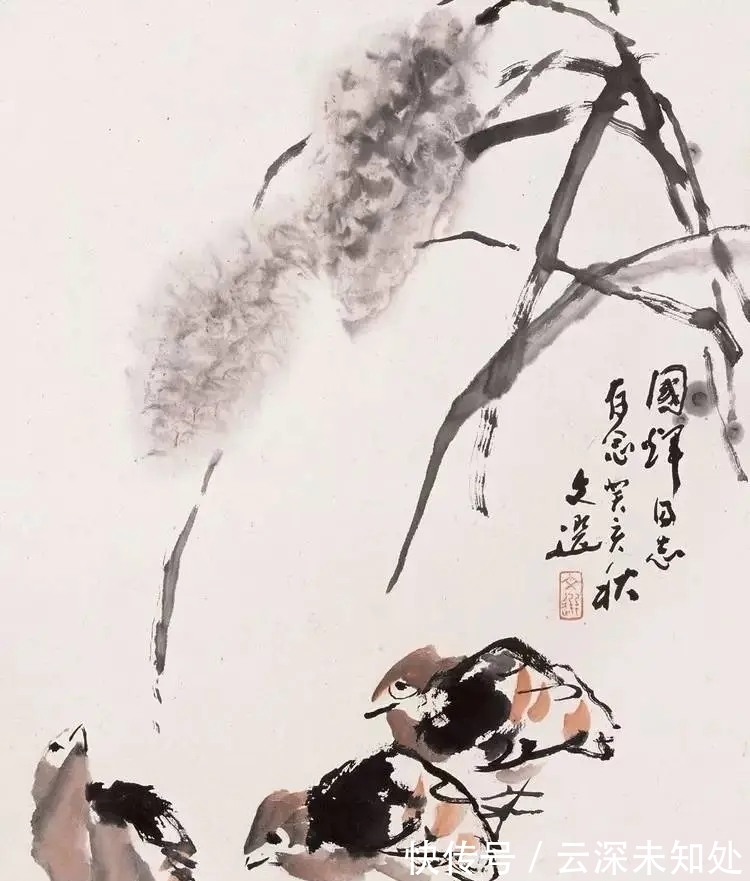 國輝同志
存念癸亥秋
文選
文選
快传号/云深未知处